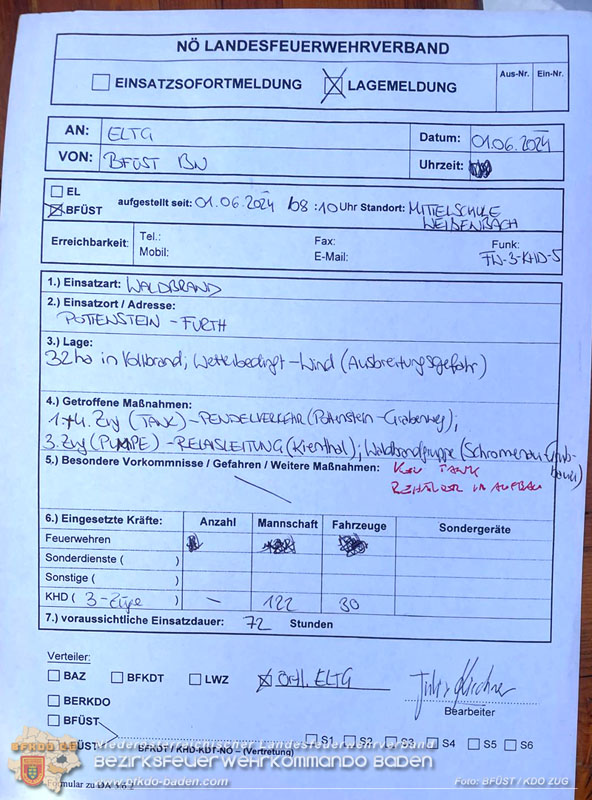 NÖ LANDESFEUERWEHRVERBAND
EINSATZSOFORTMELDUNG LAGEMELDUNG Aus-Nr. Ein-Nr.
AN: ELTG Datum: 01.06.2024
VON: BFÜST BN Uhrzeit:
EL
BFÜST aufgestellt seit: 01.06.2024 08:10 Uhr Standort: MITTELSCHULE
WEIßENBACH
Erreichbarkeit: Tel.: Fax: Funk:
Mobil: E-Mail: FW-3-KHD-5
1.) Einsatzart: WALDBRAND
2.) Einsatzort / Adresse:
POTTENSTEIN - FURTH
3.) Lage:
32ha in Vollbrand; Wetterbedingt - Wind (Ausbreitungsgefahr)
4.) Getroffene Maßnahmen:
1.+4. Zug (TANK) - PENDELVERKEHR (Pottenstein - Grabenweg);
3. Zug (PUMPE) - RELAISLEITUNG (Kienthal); Waldbrandgruppe (Schromenau-
5.) Besondere Vorkommnisse / Gefahren / Weitere Maßnahmen: TANK
BEHÄLTER IM AUFBAU
6.) Eingesetzte Kräfte: Anzahl Mannschaft Fahrzeuge Sondergeräte
Feuerwehren
Sonderdienste ( )
Sonstige ( )
KHD ( 3 - Züge ) - 122 30
7.) voraussichtliche Einsatzdauer: 72 Stunden
Verteiler:
BAZ BFKDT LWZ Örtl. ELTG
Bearbeiter
BERKDO
BFÜST
S1 S2 S3 S4 S5 S6
BFÜST BFKDT / KHD-KDT-NÖ – (Vertretung)
BFKDO BADEN
Niederösterreichischer Landesfeuerwehrverband
Bezirksfeuerwehrkommando Baden
www.bfkdo-baden.com
Foto: BFÜST / KDO ZUG
Formular zu DA 5.6.2